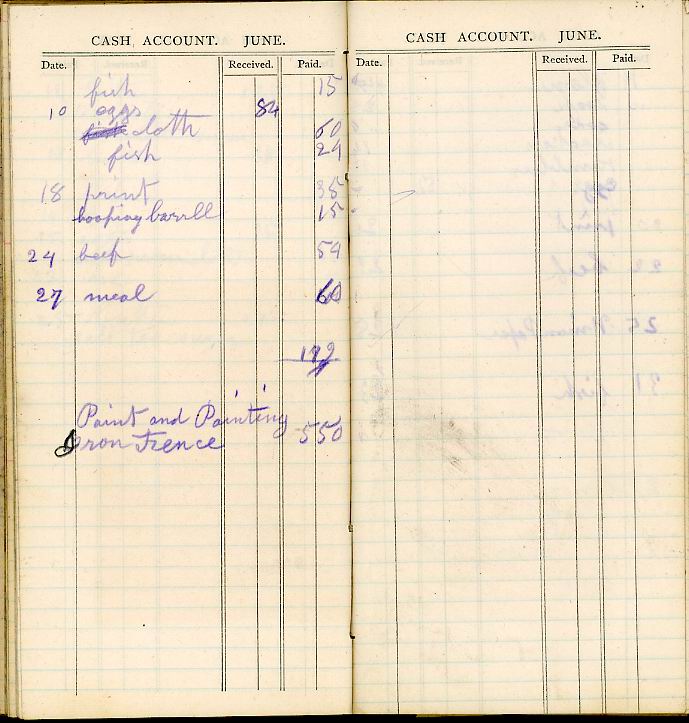 CASH ACCOUNT. JUNE.
Date. Received. Paid.
fish 15
10 eggs 84
cloth 60
fish 24
18 print 35
hooping barrell 15
24 beef 54
27 meal 60
Paint and Painting
Iron Fence 550
CASH ACCOUNT. JUNE.
Date. Received. Paid.